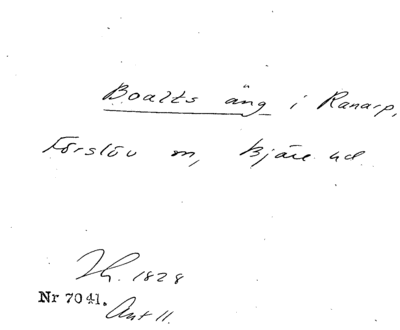 Boalts äng i Ranarp,
Förslöv sn, Bjäre hd
Th. 1828
Nr 7041.
Ant 11.